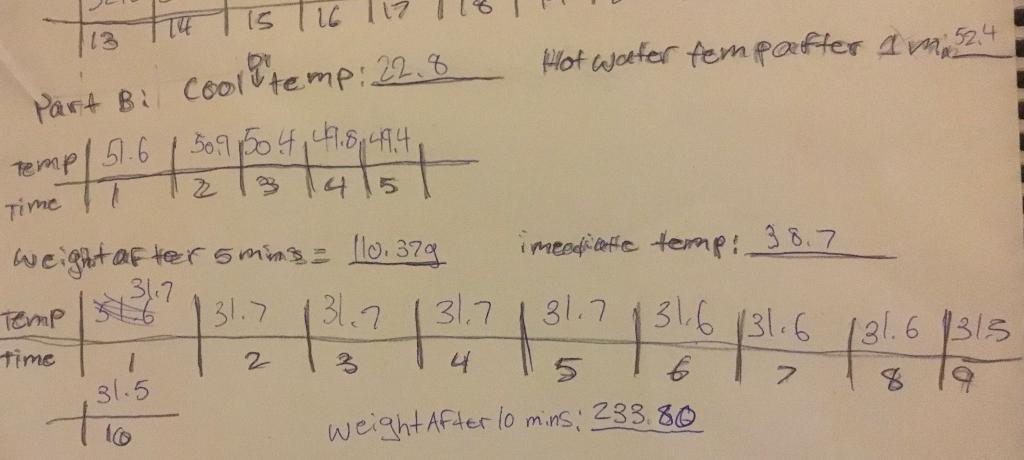 13 14 15 16 17 18
Part B: Cool temp: 22.8 Hot water temp after 1 min 52.4
Temp 51.6 50.9 50.4 49.8 49.4
Time 1 2 3 4 5
weight after 5 mins = 110.37g imeediatte temp: 38.7
Temp 31.7 31.7 31.7 31.7 31.7 31.6 31.6 31.6 31.5
time 1 2 3 4 5 6 7 8 9
31.5
10
weight After 10 mins: 233.80